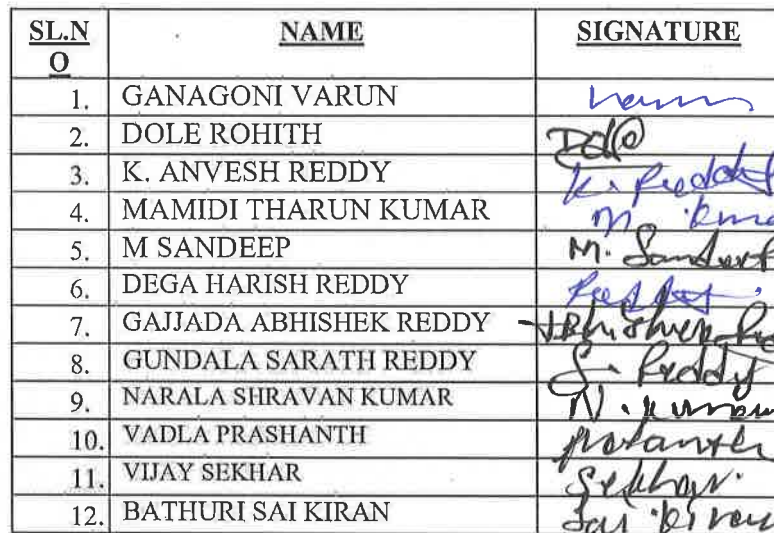 SL.N
O
NAME
SIGNATURE
1. GANAGONI VARUN
2. DOLE ROHITH Dole
3. K. ANVESH REDDY K. Reddy
4. MAMIDI THARUN KUMAR M kuma
5. M SANDEEP M. Sandeep
6. DEGA HARISH REDDY
7. GAJJADA ABHISHEK REDDY Abhishek
8. GUNDALA SARATH REDDY S. Reddy
9. NARALA SHRAVAN KUMAR N. kumar
10. VADLA PRASHANTH
11. VIJAY SEKHAR Sekhar.
12. BATHURI SAI KIRAN Sai kiran